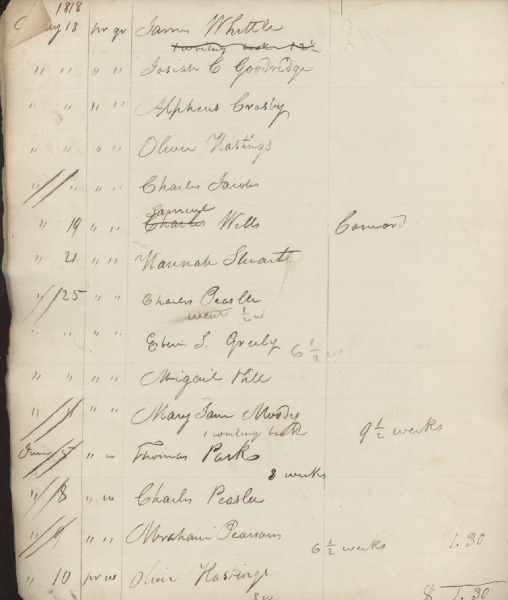 1818
18 pr qr James Whittle
" " " " Josiah C Goodridge
" " " " Alpheus Crosby
" " " " Oliver Hastings
" " " " Charles Jacobs
Samuel
" 19 " " Charles Wells Concord
" 21 " " Hannah Stuarts
" 25 " " Charles Peaslee
went 1/2 w
" " " " Eben S. Greely 6 1/2 w
" " " " Abigail Hill
" " " " Mary Jane Moody 9 1/2 weeks
1 writing book
June 7 " w Thomas Park
8 weeks
" 8 " w Charles Peaslee
" 9 " " Abraham Pearsons 6 1/2 weeks 1.30
" 10 pr w Oliver Hastings
8 w $ 1.30